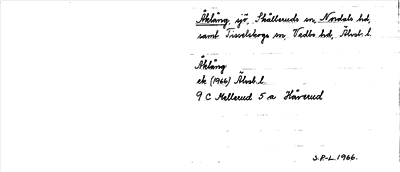 Åklång, sjö, Skålleruds sn, Nordals hd,
samt Tisselskogs sn, Vedbo hd, Älvsb. l.
Åklång
ek (1966) Älvsb. l.
9 C Mellerud 5 a Håverud
S.P-L. 1966.